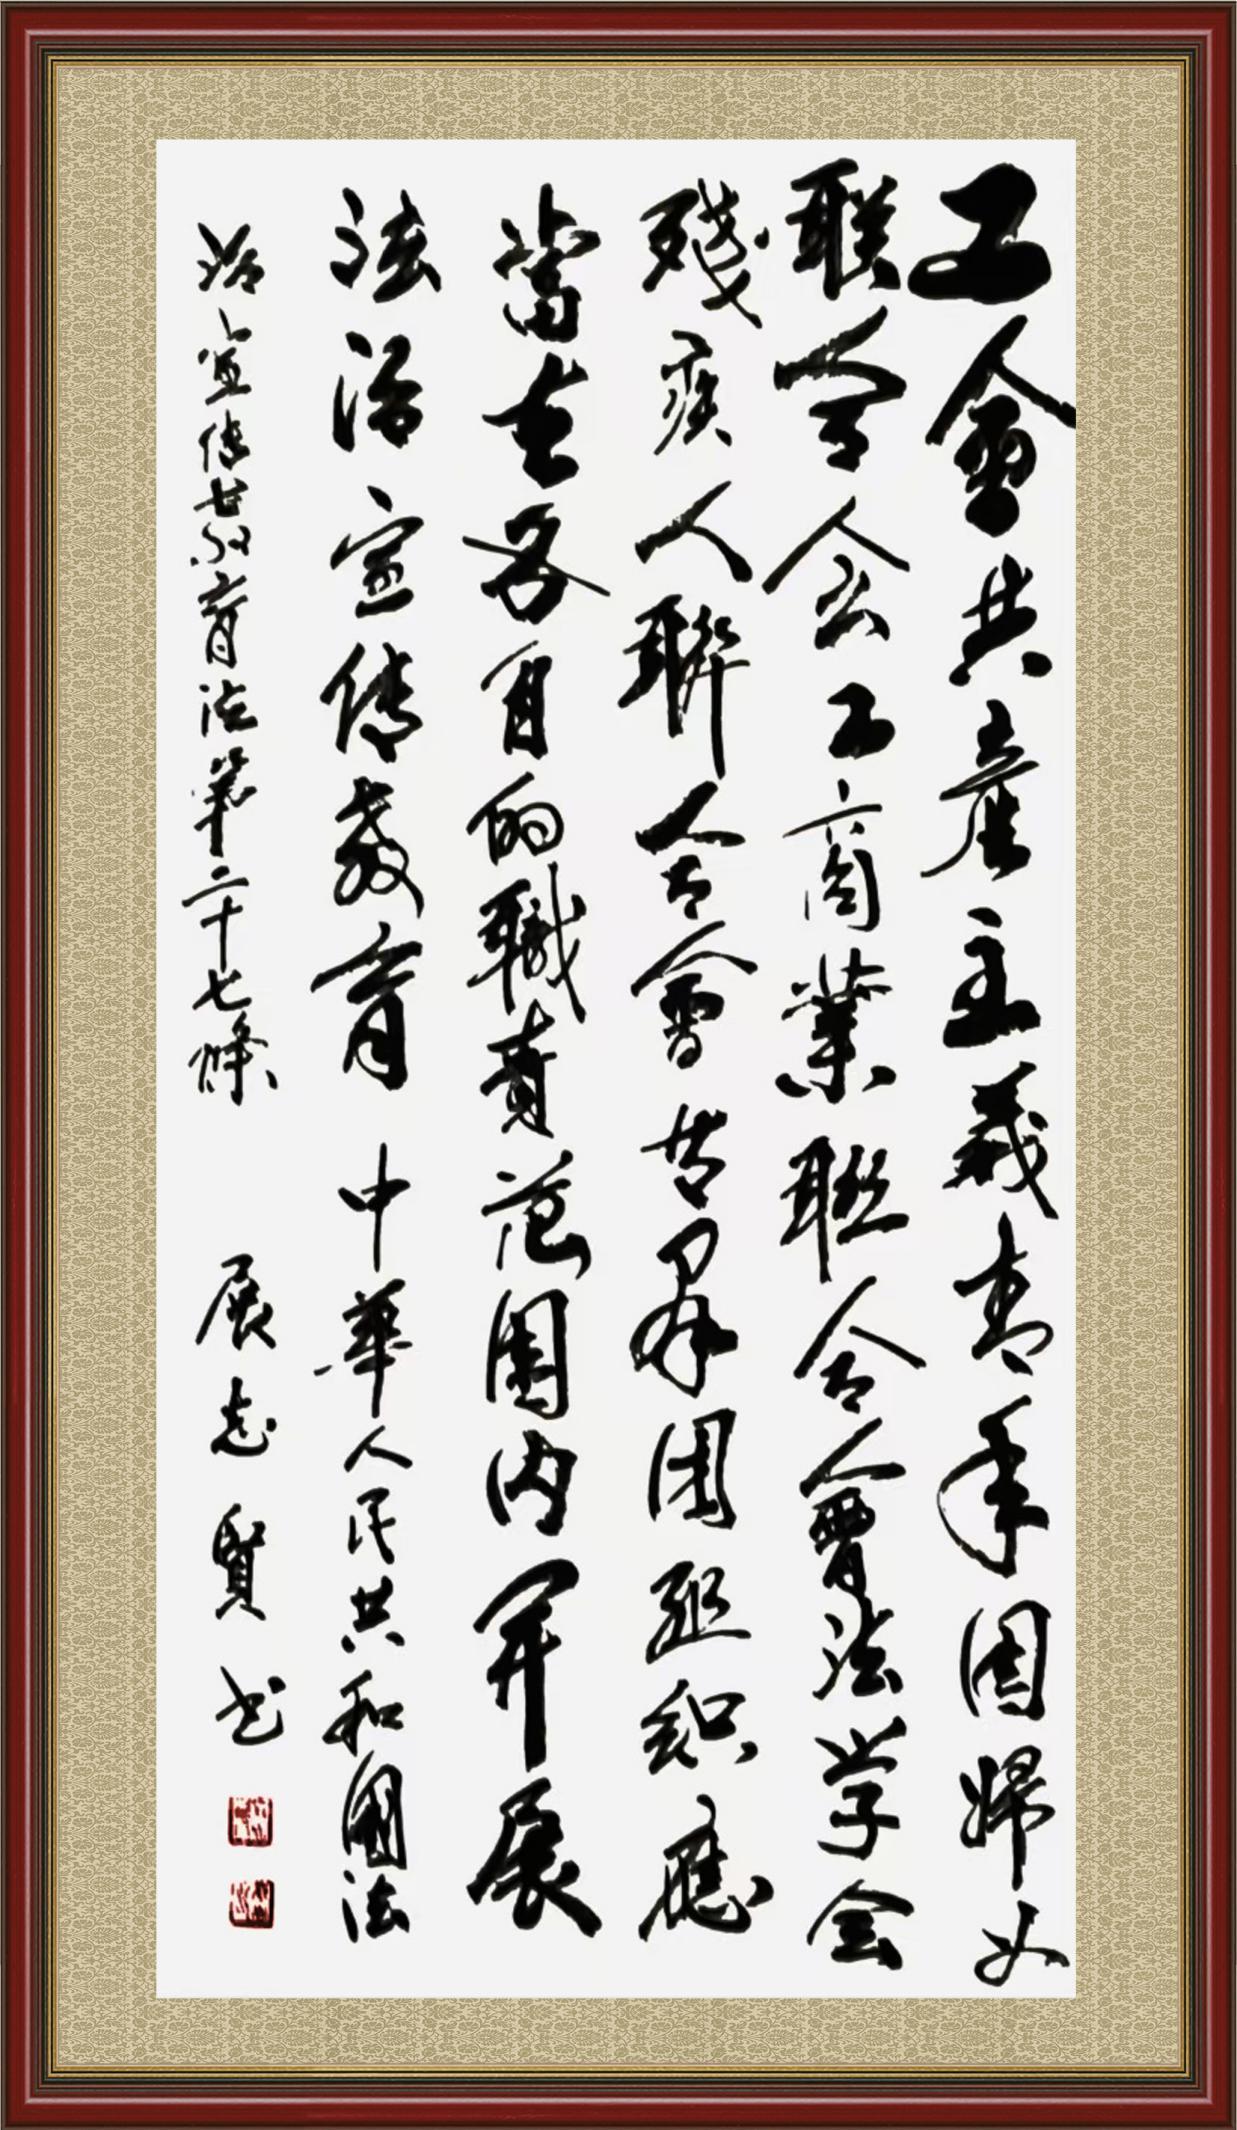 工會共產主義青年团婦女
联学会工商業联合會法学会
残疾人聯合會等群团组织應
當在各自的職責范圍内開展
法治宣传教育 中華人民共和國法
治宣传教育法第二十七條 展志賢书